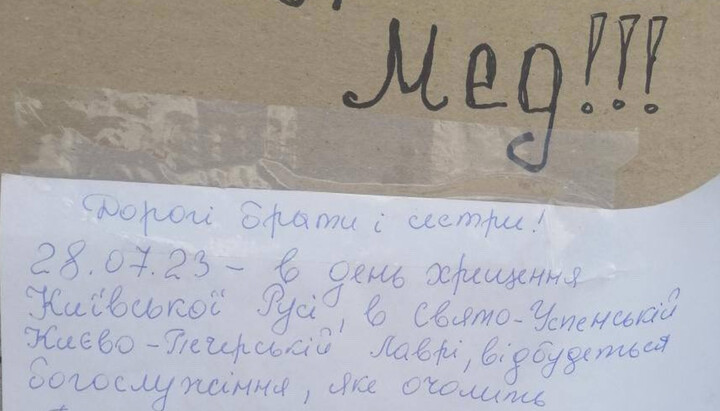 Мед!!!
Дорогі брати і сестри!
28.07.23 – в день хрещення
Київської Русі, в Свято-Успенській
Києво-Печерській Лаврі, відбудеться
богослужіння, яке очолить